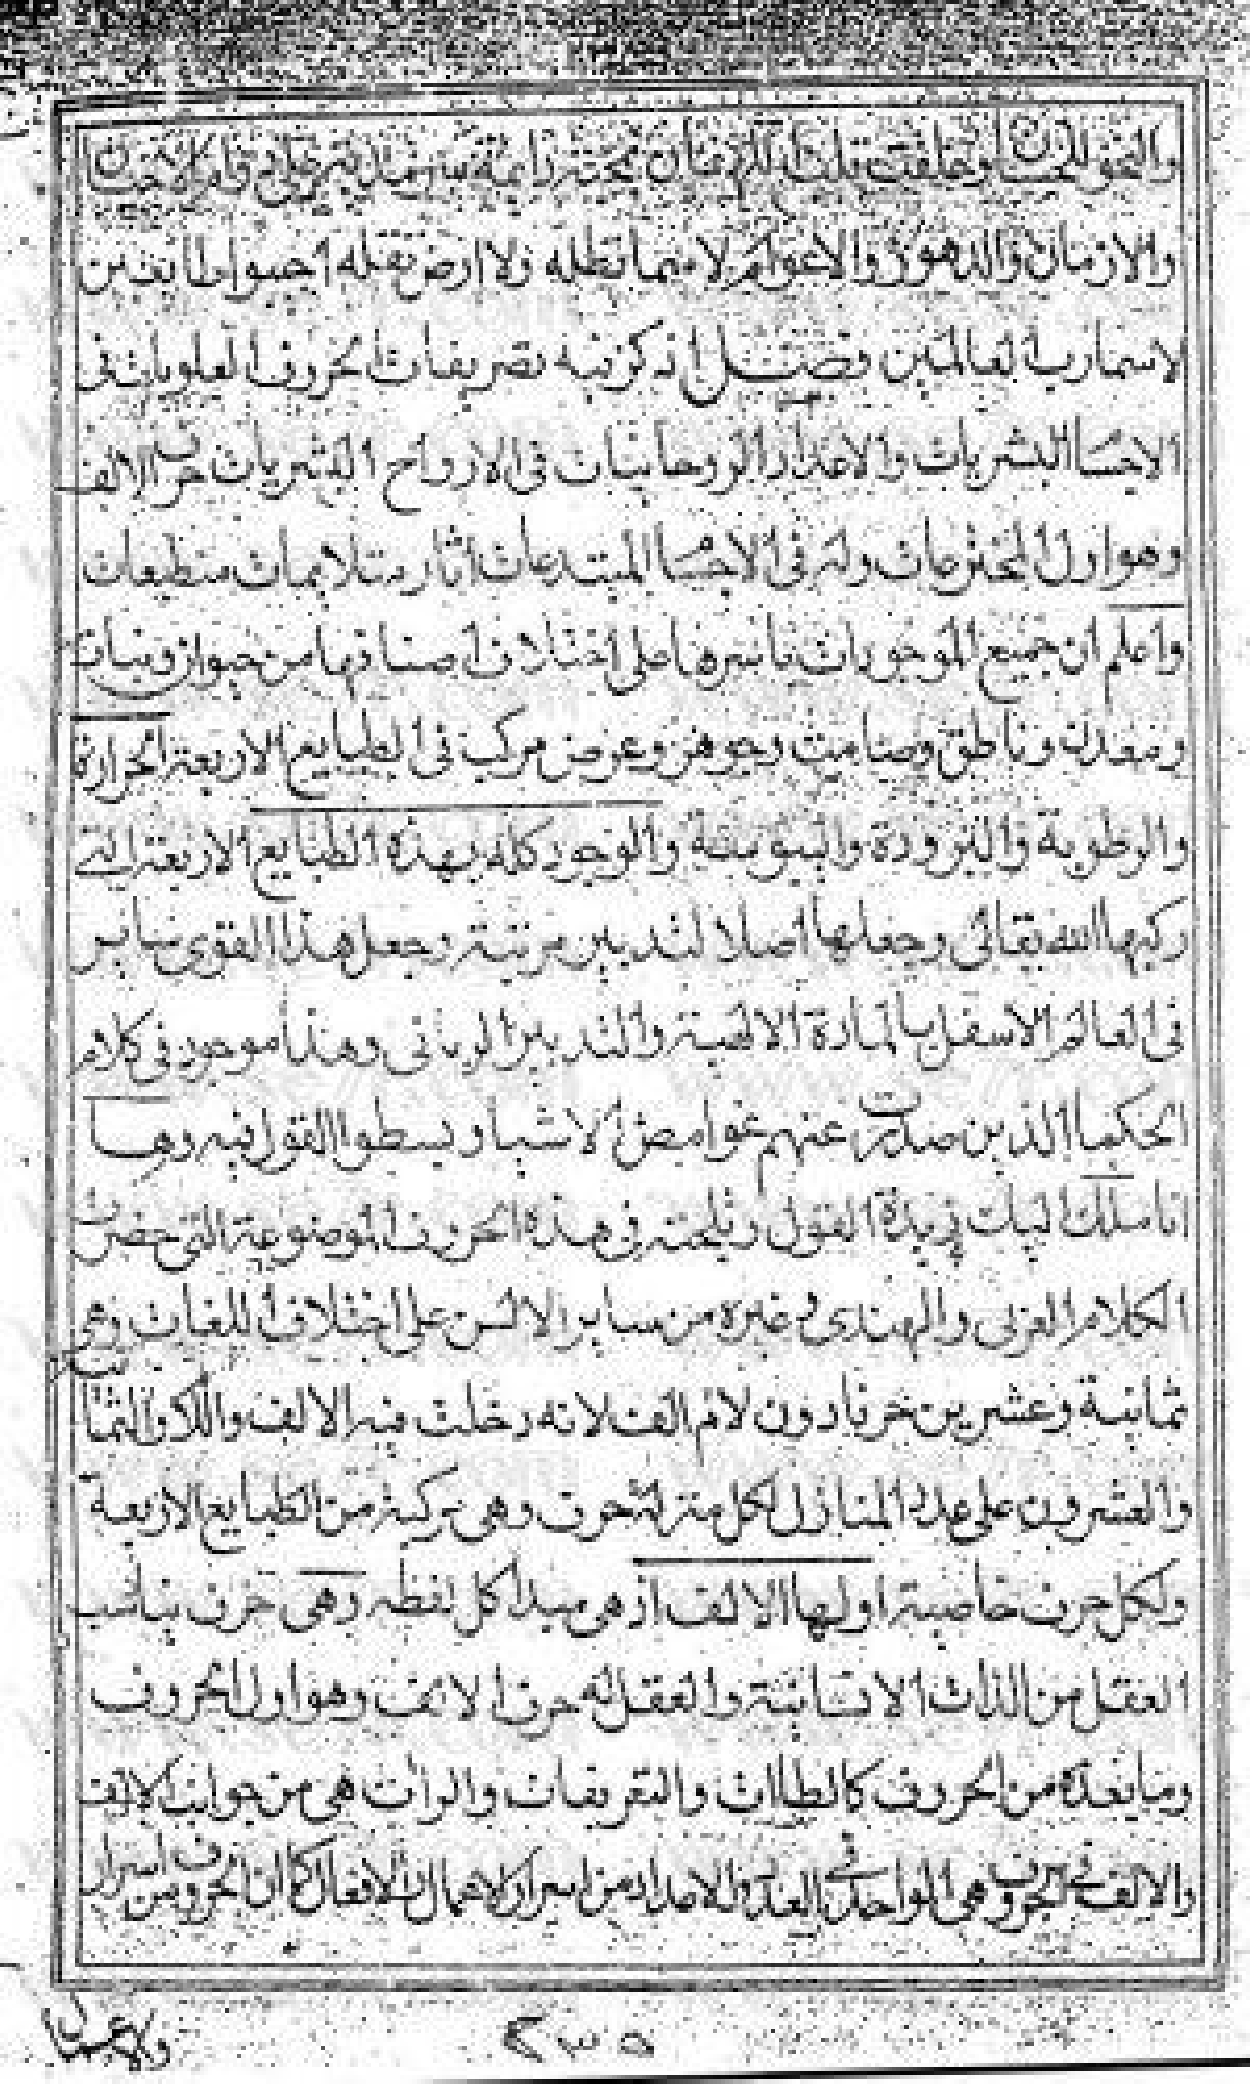 والازمان والدهور والاعوام لا سما تظله ولا ارض تقله اجيبوا طايعين
لاسما رب العالمين فصل اذكر فيه تصريفات الحروف العلويات فى
الاجسا البشريات والاعداد الروحانيات فى الارواح البشريات حرف الالف
وهو اول المخترعات وله فى الاجسا المبتدعات اثار متلايمات منطبعات
واعلم ان جميع الموجودات باسرها على اختلاف اصنافها من حيوان ونبات
ومعدن وناطق وصامت وجوهر وعرض مركب فى الطبايع الاربعة الحرارة
والرطوبة والبرودة واليبوسة والوجود كله بهذه الطبايع الاربعة التى
ركبها الله تعالى وجعلها اصلا لتدبير بريته وجعل هذا القوى ساير
فى العالم الاسفل بالمادة الالهية والتدبير الربانى وهذا موجود فى كلام
الحكما الذين صدرت عنهم غوامض الاشيا وبسطوا القول فيه وها
انا سلك ليك زبدة القول فى هذه الحروف الموضوعة التى حضرت
الكلام العربى والهندى وغيره من ساير الالسن على اختلاف اللغات وهى
ثمانية وعشرين حرفا دون لام الف لانه دخلت فيه الالف واللام والثما
والعشرون على عدد المنازل لكل منزلة حرف وهى مركبة من الطبايع الاربعة
ولكل حرف خاصية اولها الالف اذ هى مبدا كل لفظه وهى حرف يناسب
العقل من الذات الانسانية والعقل له حرف الالف وهو اول الحروف
وما بعده من الحروف كالطاات والتعريفات والرات هى من جوانب الالف
والالف فى الحروف هى الواحد فى العدد والاعداد من اسرار الاعمال والافعال كما ان الحروف من اسرار
٢٣٥
والاعمال